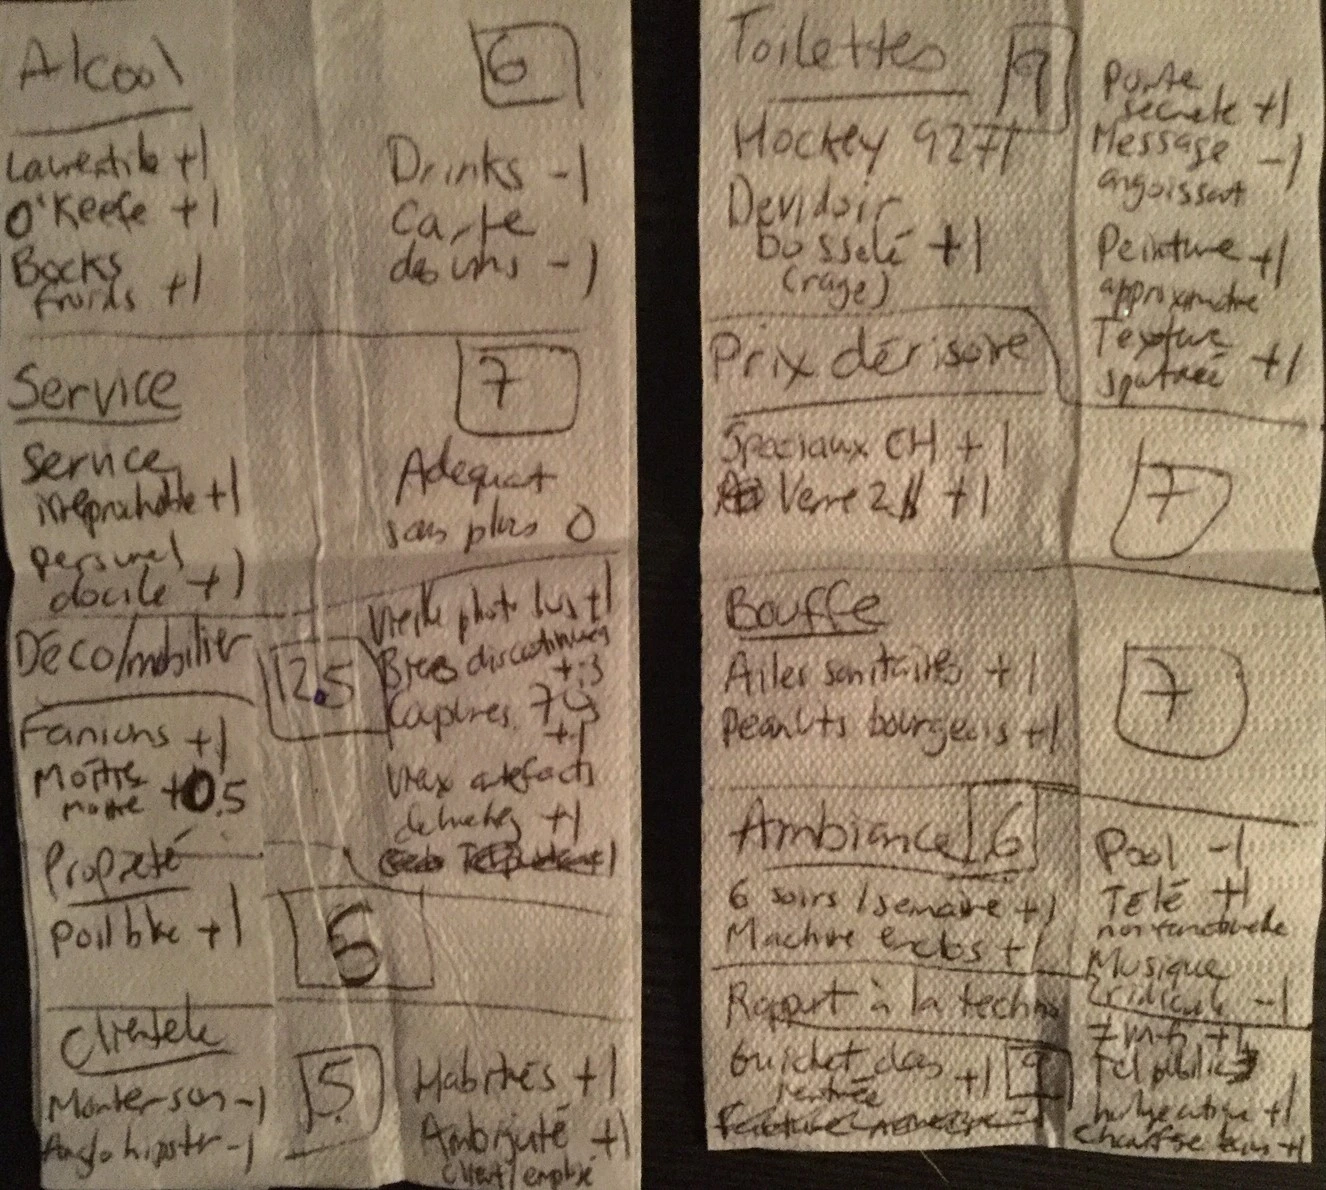 Alcool
6
Laurentide +1
O'Keefe +1
Bocks
froids +1
Drinks -1
Carte
des vins -1
Service
7
Service
irréprochable +1
personnel
docile +1
Adequat
sans plus 0
Déco/mobilier
2.5
Fanions +1
Moitié
moitié +0.5
Vieille photo +1
discontinues
+.5
Vieux artefacts
+1
Propreté
Poil bke +1
Clientele
5
-1
Anglo hipster -1
Habitués +1
Ambiguité +1
client/employé
Toilettes
9
Hockey 92 +1
Devidoir
bosselé +1
(rage)
Porte
secrete +1
Message -1
angoissant
Peinture +1
approximative
Texture
+1
Prix dérisoire
7
Speciaux CH +1
Verre 2$ +1
Bouffe
7
Ailes sanitaires +1
Peanuts bourgeois +1
Ambiance
6
6 soirs/semaine +1
Machine enclos +1
Pool -1
Télé +1
non fonctionnelle
Musique
ridicule -1
Rapport à la techno
9
Guichet dans
l'entrée +1
Tel public
+1
+1